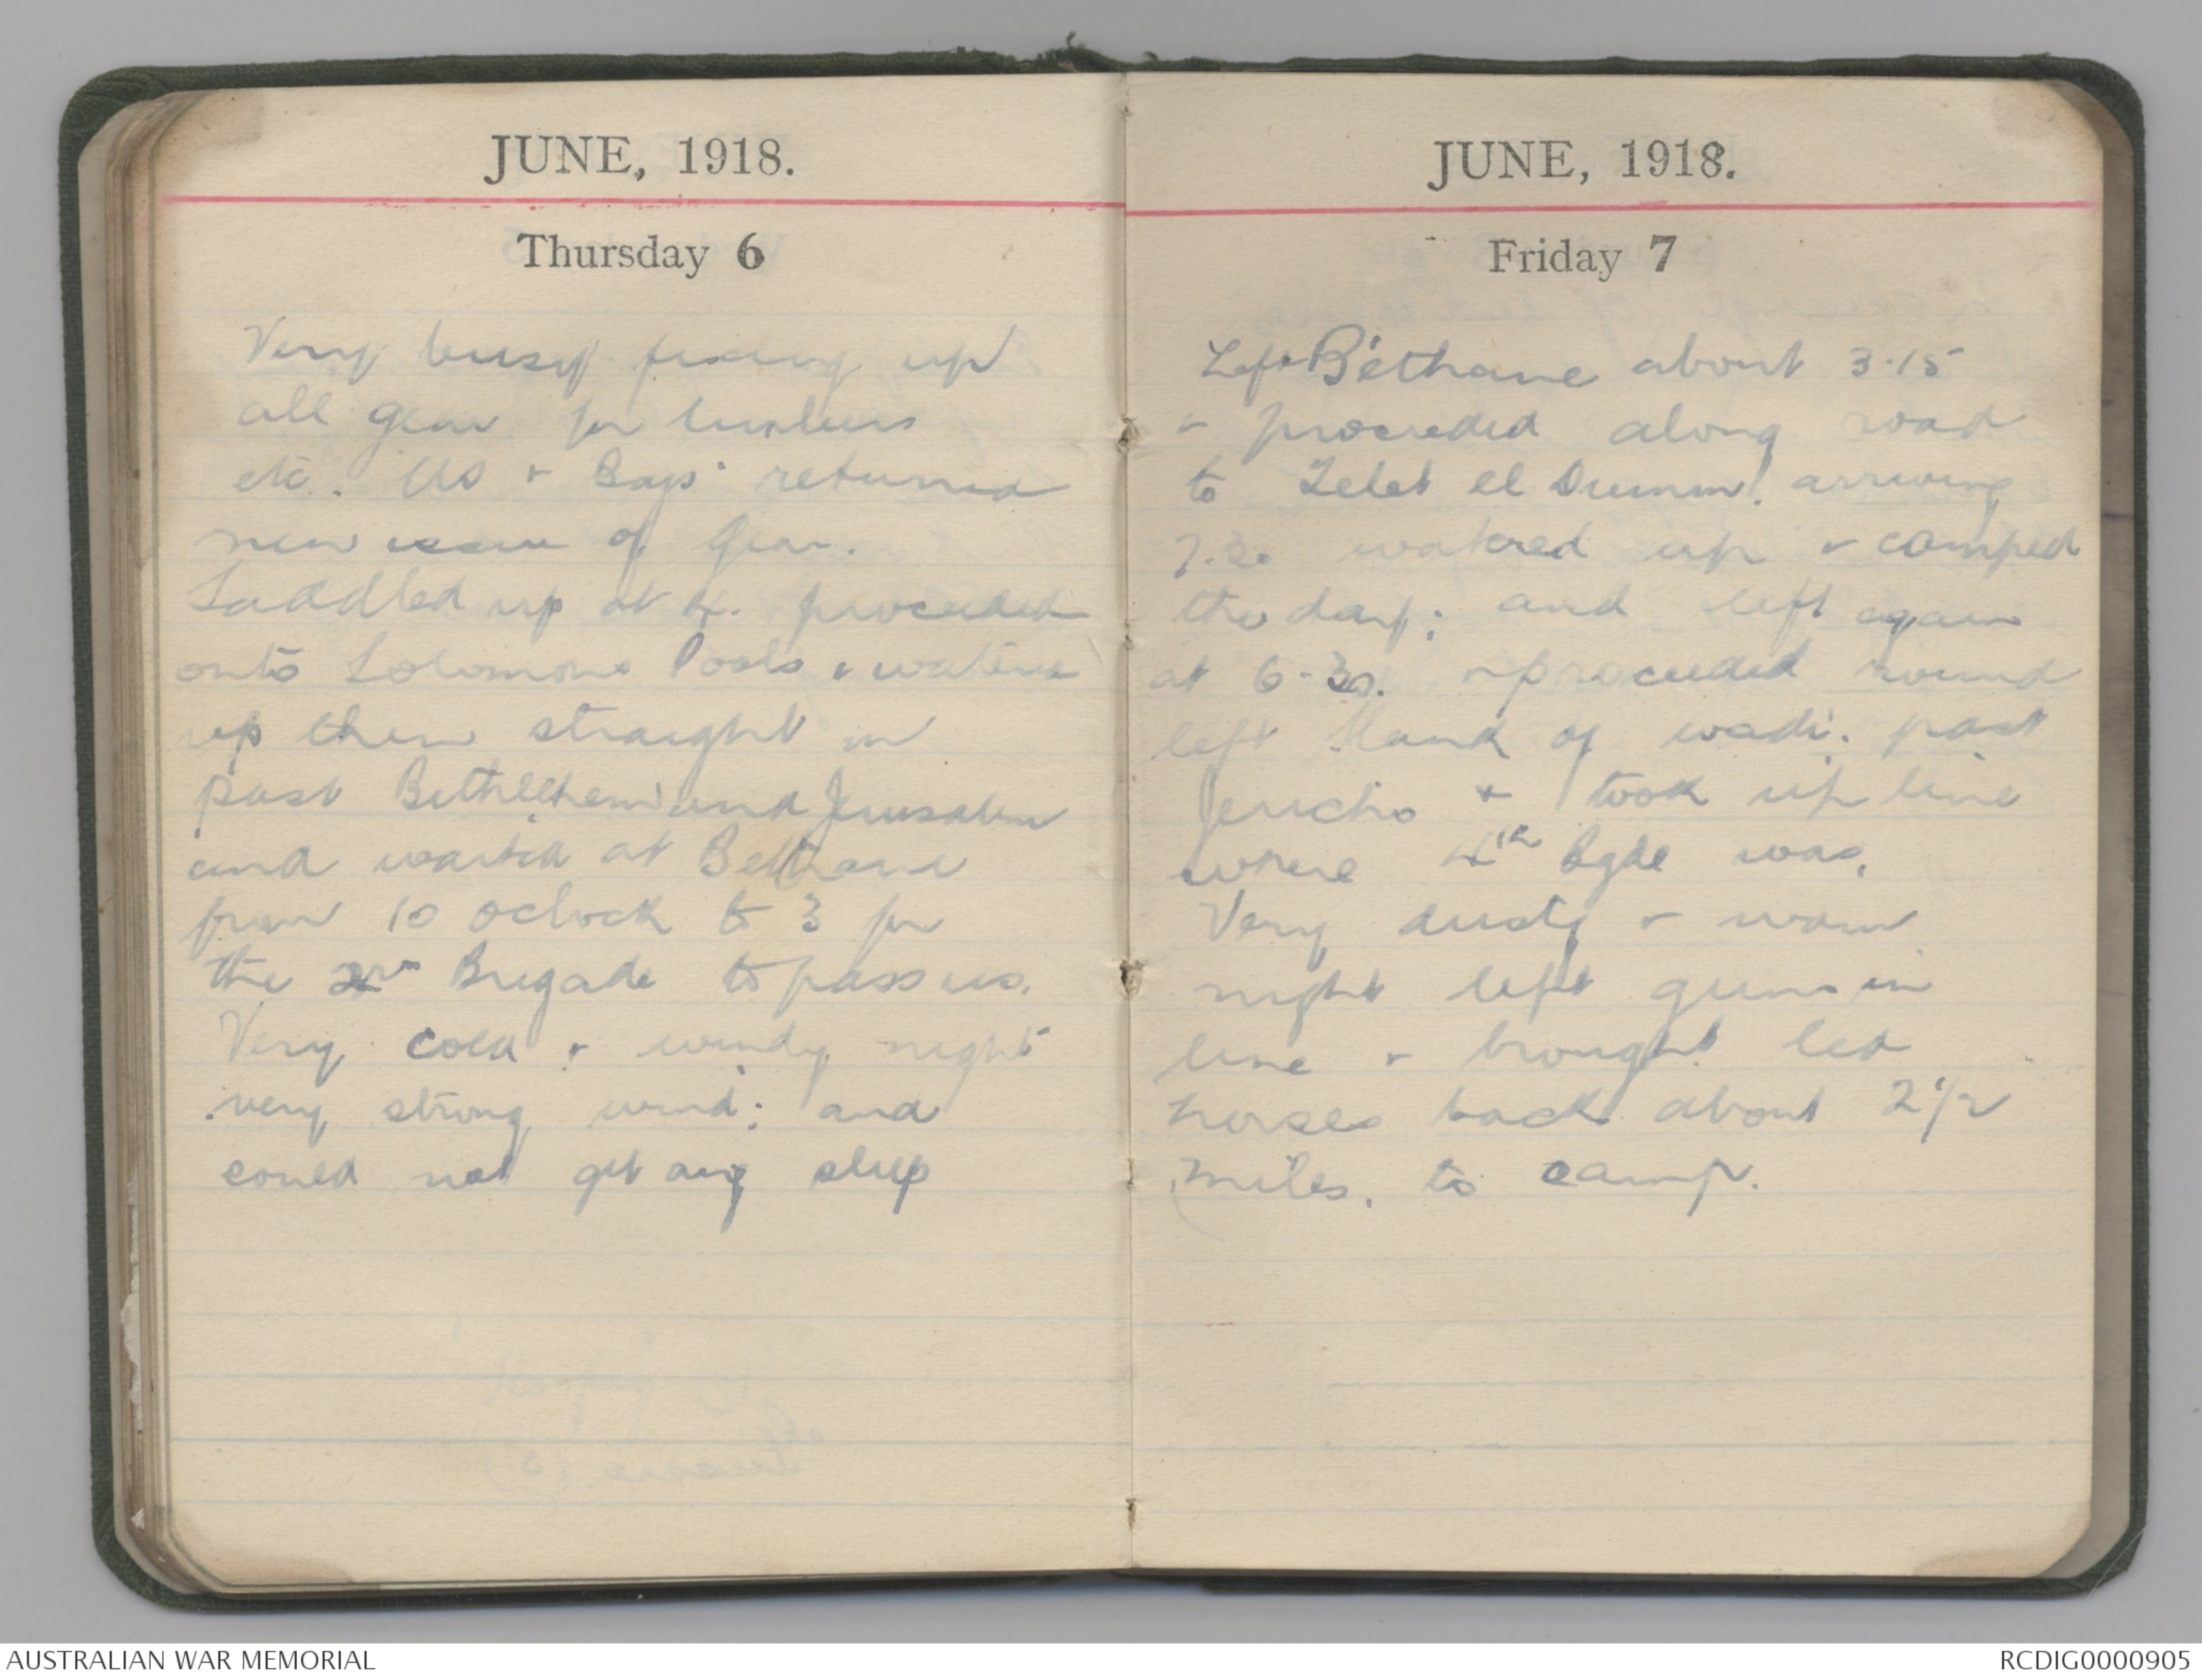 JUNE, 1918.
Thursday 6
Very busy fixing up
all gear for limbers
etc. & Bags returned
new issue of gear.
Saddled up at 4. proceeded
onto Solomons Pools &
up then straight on
past Bethlehem and Jerusalem
and waited at Bethane
from 10 oclock to 3 for
the Brigade to pass us.
Very cold & windy night
very strong wind; and
could not get any sleep
JUNE, 1918.
Friday 7
Left Bethane about 3.15
& proceeded along road
to Telet el Dumm. arriving
7.30 watered up & camped
the day; and left again
at 6-30. & proceeded round
left bank of wadi. past
Jericho & took up line
where 4th Bgde was.
Very dusty & warm
night left guns in
line & brought led
horses back about 2 1/2
miles. to camp.
AUSTRALIAN WAR MEMORIAL
RCDIG0000905